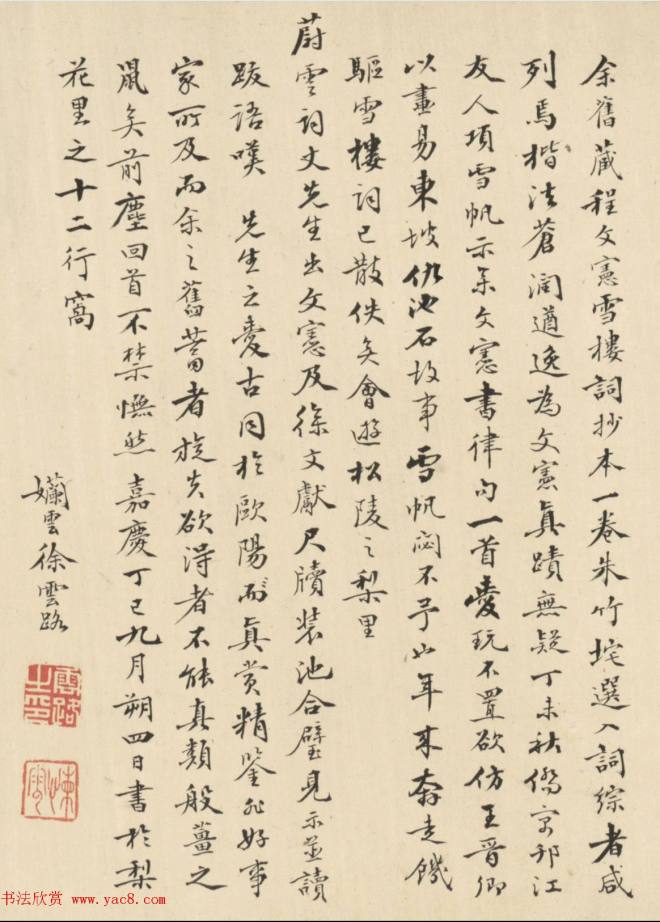 余舊藏程文憲雪樓詞抄本一卷朱竹垞選入詞綜者咸
列焉楷法蒼潤遒逸為文憲真蹟無疑丁未秋僑寓邗江
友人項雪帆示余文憲書律句一首愛玩不置欲仿王晉卿
以畫易東坡仇池石故事雪帆閟不予比年來奔走饑
驅雪樓詞已散佚矣會遊松陵之梨里
蔚雲詞丈先生出文憲及徐文獻尺牘裝池合璧見示並讀
跋語嘆 先生之愛古同於歐陽而真賞精鑒非好事
家所及而余之舊蓄者旋失欲得者不能真類般薑之
鼠矣前塵回首不禁憮然嘉慶丁巳九月朔四日書於梨
花里之十二行窩
嬾雲徐雲路
雲路之印
书法欣赏 www.yac8.com